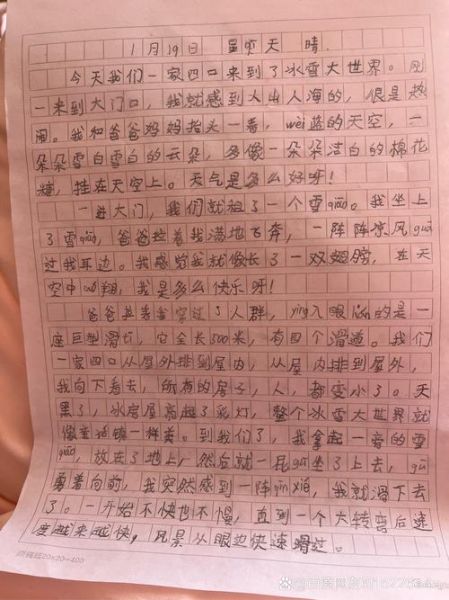 1月19日 星期天 晴
今天我们一家四口来到了冰雪大世界。刚
一来到大门口，我就感到人山人海的，很是热
闹。我和爸爸妈妈抬头一看，wèi蓝的天空，一
朵朵雪白雪白的云朵，多像一朵朵洁白的棉花
糖，挂在天空上。天气是多么好呀！
一进大门，我们就租了一个雪qiāo。我坐上
了雪qiāo，爸爸拉着我满地飞奔，一阵阵凉风guā
过我耳边。我感觉我就像长了一双翅膀，在天
空中翔，我是多么快乐呀！
爸爸穿过了人群，yìng入眼lián的是一
座巨型滑梯，它全长500米，有四个滑道。我们
一家四口从屋外排到屋内，从屋内排到屋外，
我向下看去，所有的房子，人，都变小了。天
黑了，冰房屋亮起了彩灯，整个冰雪大世界就
像童话镇一样美。到我们了，我拿起一旁的雪
qiāo，放在了地上，然后就一屁gǔ坐了上去，gǔ
勇着向前，我突然感到一阵，我就滑下去
了。一开始不快也不慢，直到一个大转弯后速
度越来越快，风景从眼边快速滑过。
20×20=400